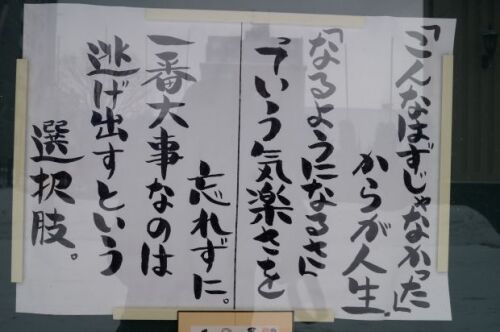 「こんなはずじゃなかった」
からが人生。
「なるようになるさ」
っていう気楽さを
忘れずに。
一番大事なのは
逃げ出すという
選択肢。